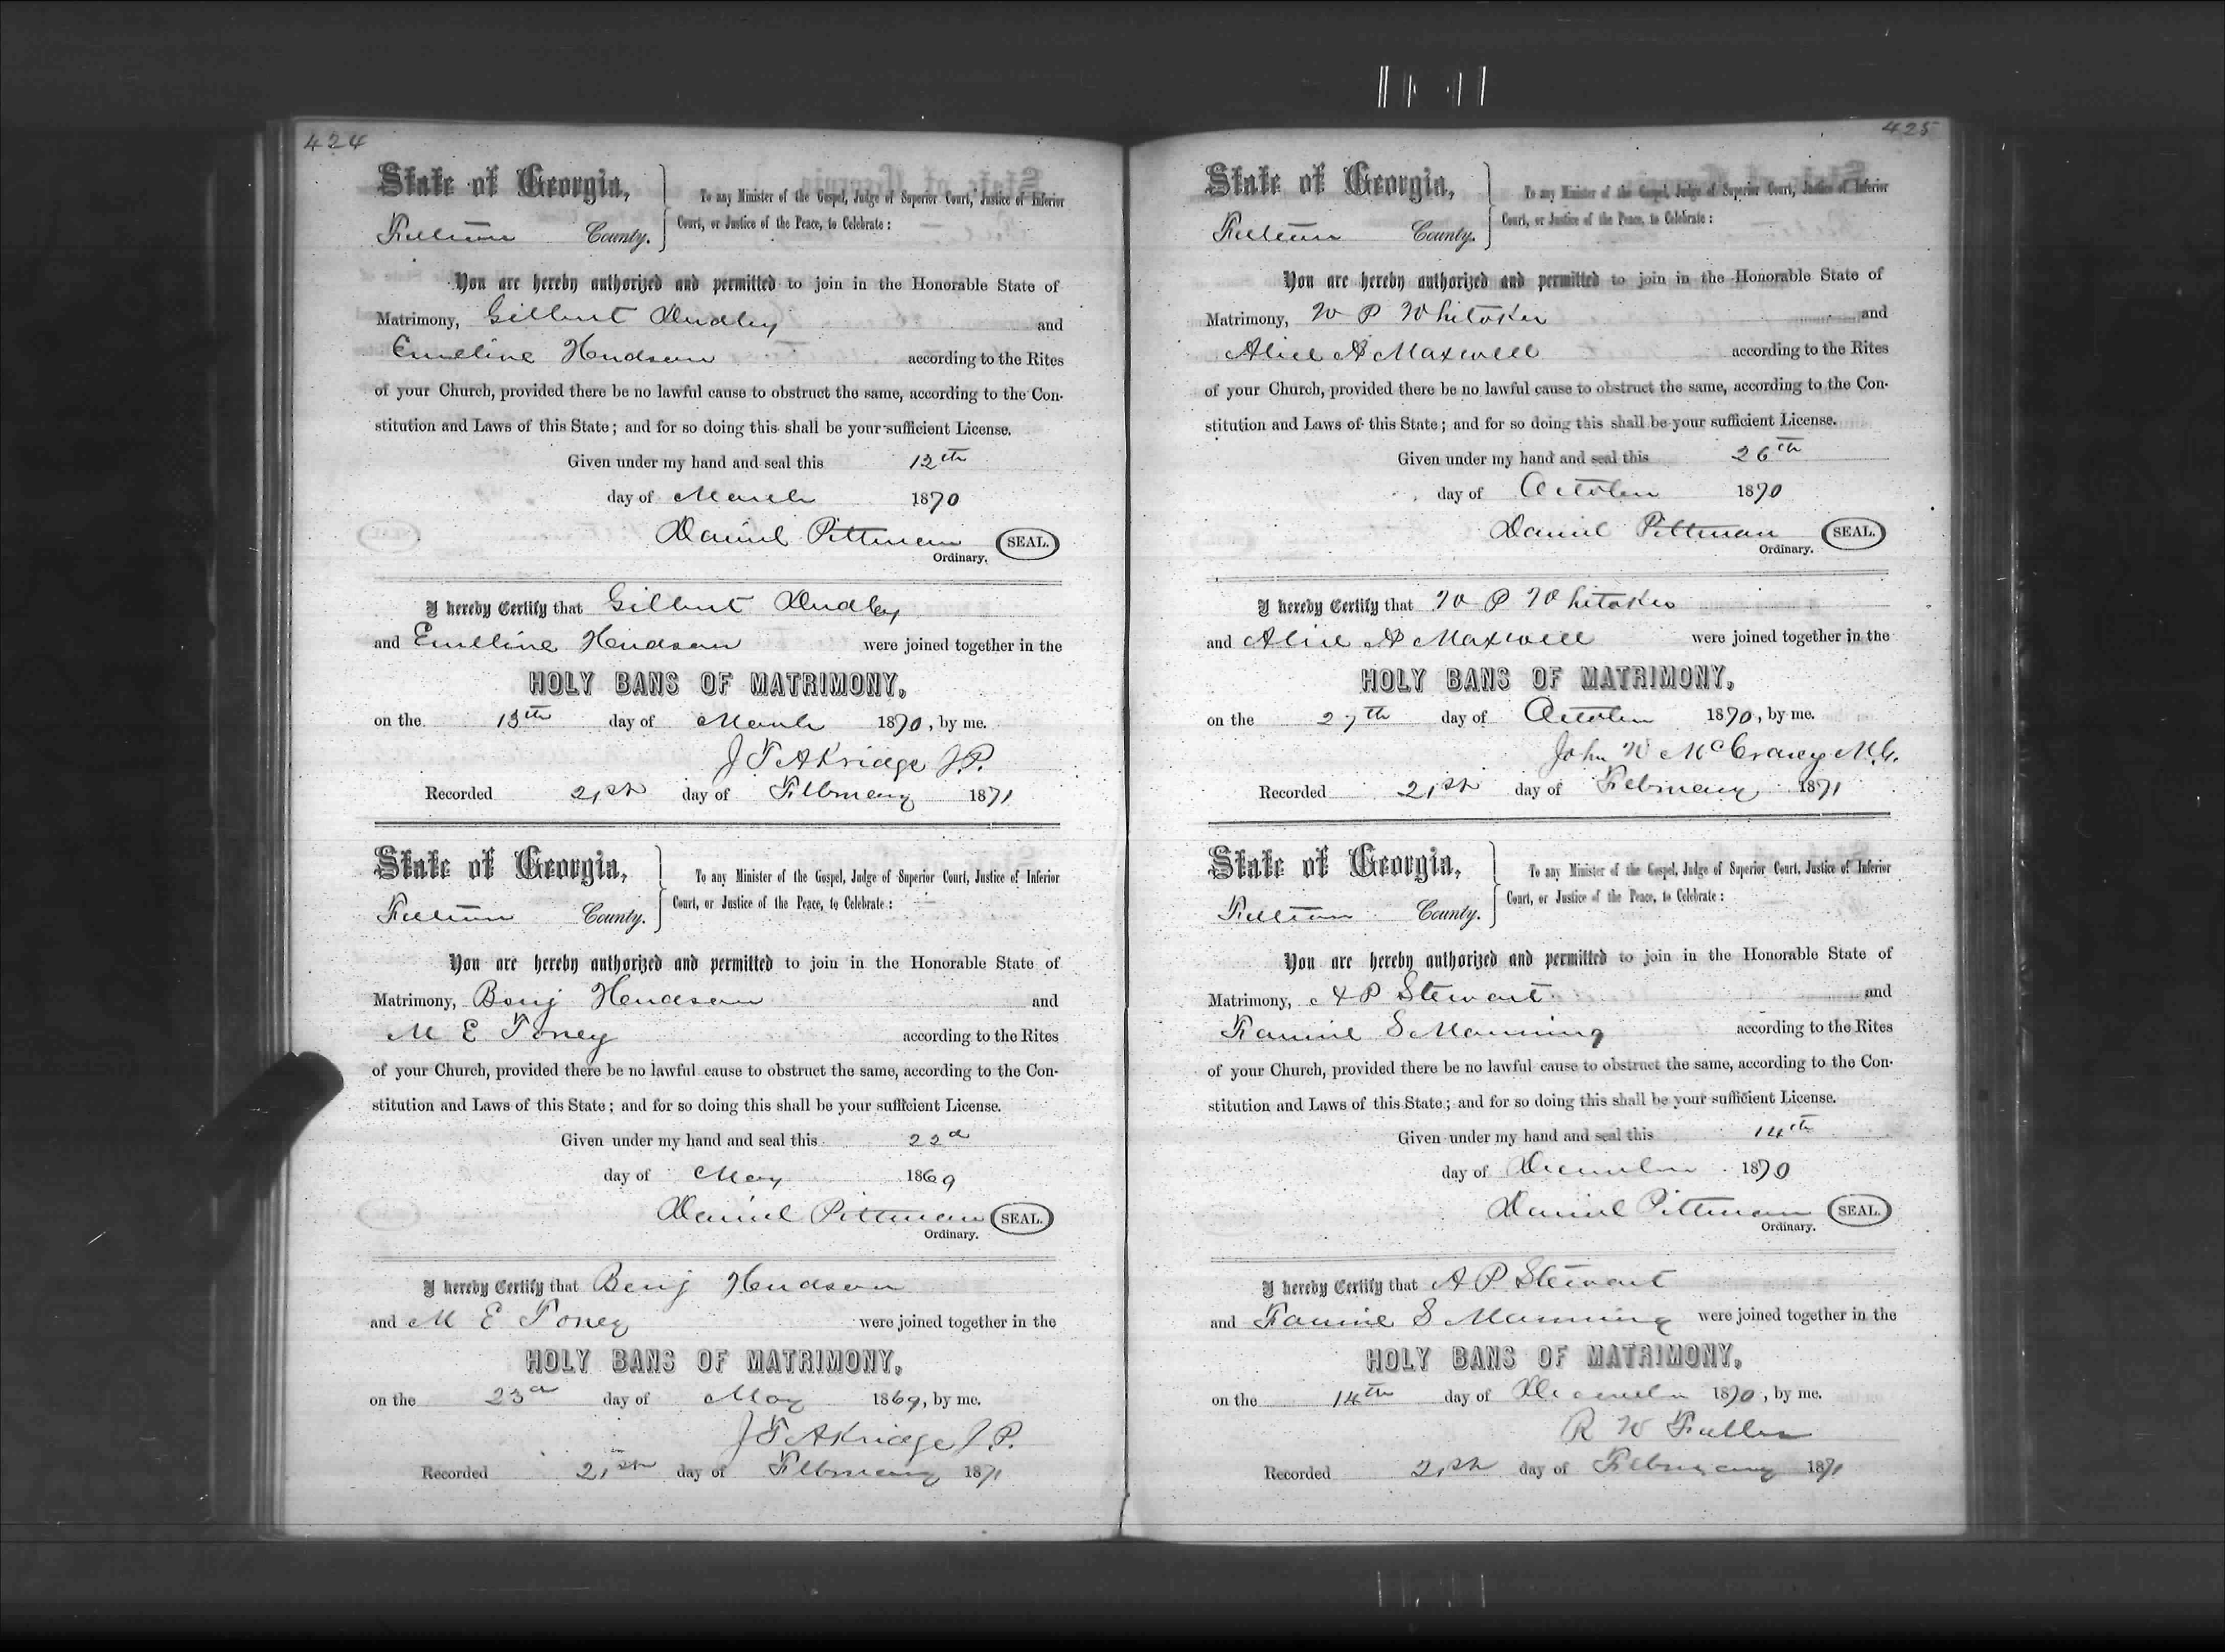 424
State of Georgia,
Fulton County.
To any Minister of the Gospel, Judge of Superior Court, Justice of Inferior
Court, or Justice of the Peace, to Celebrate :
You are hereby authorized and permitted to join in the Honorable State of
Matrimony, Gilbert Dudley and
Emeline Hendson according to the Rites
of your Church, provided there be no lawful cause to obstruct the same, according to the Con-
stitution and Laws of this State ; and for so doing this shall be your sufficient License.
Given under my hand and seal this 12th
day of March 1870
Daniel Pittman SEAL.
Ordinary.
I hereby Certify that Gilbert Dudley
and Emeline Hendson were joined together in the
HOLY BANS OF MATRIMONY,
on the 13th day of March 1870, by me.
J T Akridge J.P.
Recorded 21st day of February 1871
State of Georgia,
Fulton County.
To any Minister of the Gospel, Judge of Superior Court, Justice of Inferior
Court, or Justice of the Peace, to Celebrate :
You are hereby authorized and permitted to join in the Honorable State of
Matrimony, Benj Hendson and
M E Toney according to the Rites
of your Church, provided there be no lawful cause to obstruct the same, according to the Con-
stitution and Laws of this State ; and for so doing this shall be your sufficient License.
Given under my hand and seal this 22d
day of May 1869
Daniel Pittman SEAL.
Ordinary.
I hereby Certify that Benj Hendson
and M E Toney were joined together in the
HOLY BANS OF MATRIMONY,
on the 23d day of May 1869, by me.
J T Akridge J P.
Recorded 21st day of February 1871
425
State of Georgia,
Fulton County.
To any Minister of the Gospel, Judge of Superior Court, Justice of Inferior
Court, or Justice of the Peace, to Celebrate :
You are hereby authorized and permitted to join in the Honorable State of
Matrimony, W P Whitaker and
Alice A Maxwell according to the Rites
of your Church, provided there be no lawful cause to obstruct the same, according to the Con-
stitution and Laws of this State ; and for so doing this shall be your sufficient License.
Given under my hand and seal this 26th
day of October 1870
Daniel Pittman SEAL.
Ordinary.
I hereby Certify that W P Whitaker
and Alice A Maxwell were joined together in the
HOLY BANS OF MATRIMONY,
on the 27th day of October 1870, by me.
John W McCrary M.G.
Recorded 21st day of February 1871
State of Georgia,
Fulton County.
To any Minister of the Gospel, Judge of Superior Court, Justice of Inferior
Court, or Justice of the Peace, to Celebrate :
You are hereby authorized and permitted to join in the Honorable State of
Matrimony, A P Stewart and
Fannie S Manning according to the Rites
of your Church, provided there be no lawful cause to obstruct the same, according to the Con-
stitution and Laws of this State ; and for so doing this shall be your sufficient License.
Given under my hand and seal this 14th
day of December 1870
Daniel Pittman SEAL.
Ordinary.
I hereby Certify that A P Stewart
and Fannie S Manning were joined together in the
HOLY BANS OF MATRIMONY,
on the 14th day of December 1870, by me.
R W Fuller
Recorded 21st day of February 1871